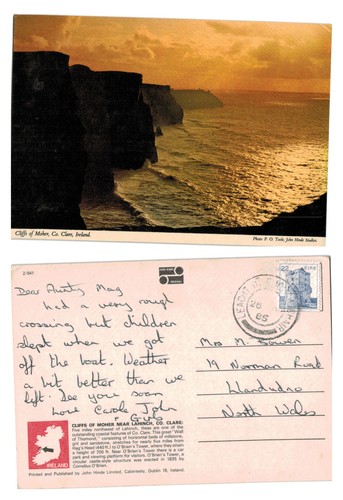 Cliffs of Moher, Co. Clare, Ireland.
Photo: P. O. Toole, John Hinde Studios
2/941
Dear Aunty Mag
had a very rough
crossing but children
slept when we got
off the boat. Weather
a bit better than we
left. See you soon
Love Carole John
+ Girls
22 EIRE
26
85
Mrs M. Bowen
19 Norman Road
Llandudno
North Wales
IRELAND
CLIFFS OF MOHER NEAR LAHINCH, CO. CLARE:
Five miles northwest of Lahinch, these are one of the
outstanding coastal features of Co. Clare. This great "Wall
of Thomond," consisting of horizontal beds of millstone,
grit and sandstone, stretches for nearly five miles from
Hag's Head (440 ft.) to O'Brien's Tower, where they rise
from a height of 700 ft. Near O'Brien's Tower there is a car
park and viewing platform for visitors. O'Brien's Tower, a
circular castle-style structure was erected in 1835 by
Cornelius O'Brien.
Printed and Published by John Hinde Limited, Cabinteely, Dublin 18, Ireland.